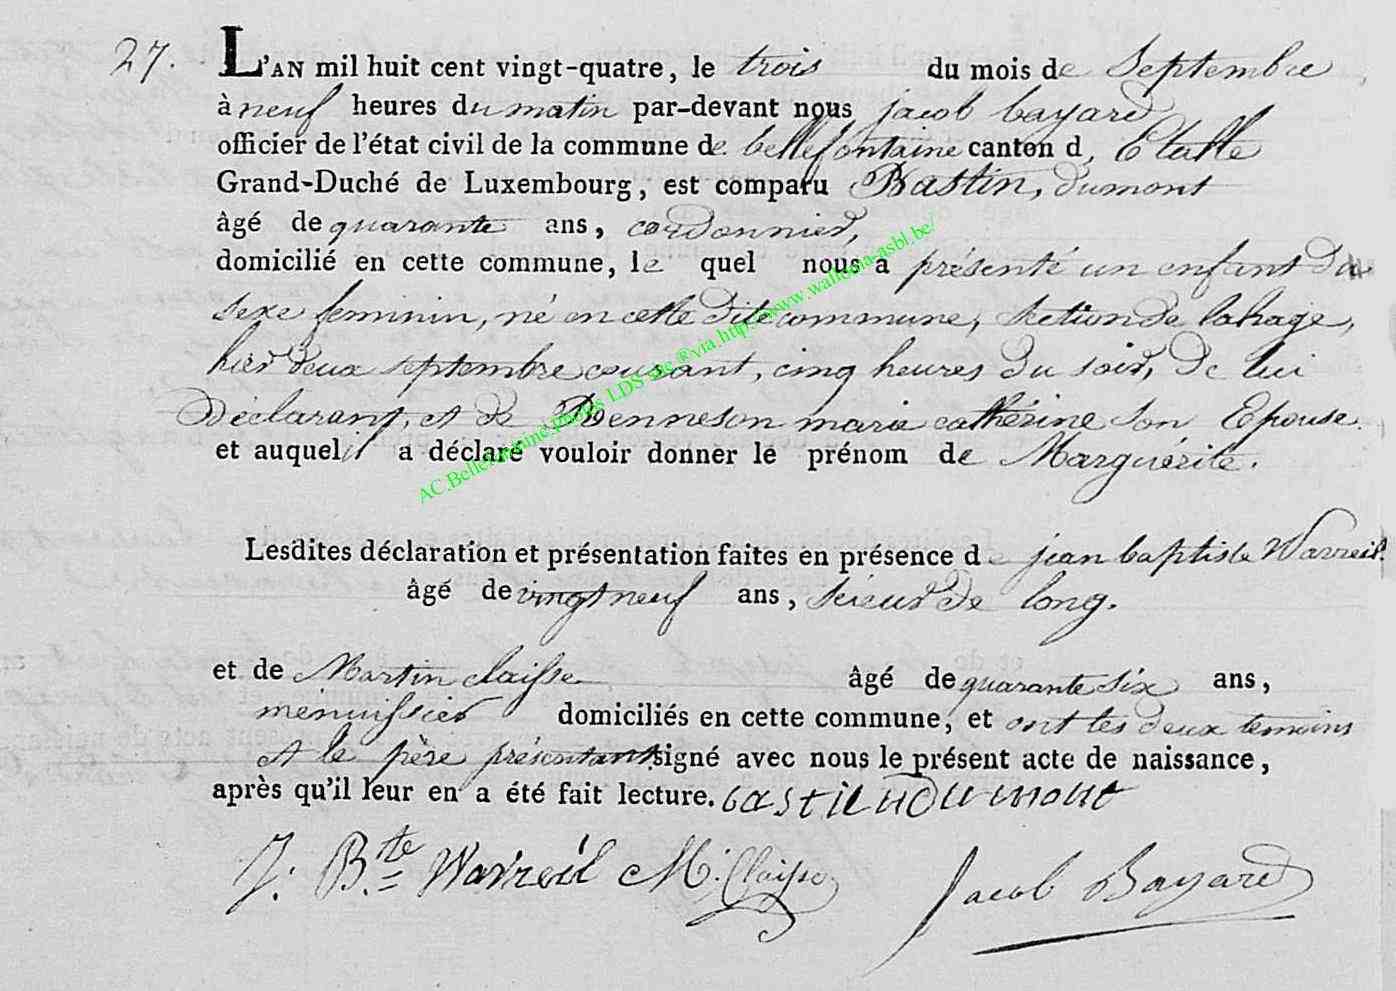 27.
L'AN mil huit cent vingt-quatre, le trois du mois de Septembre
à neuf heures du matin par-devant nous jacob bayard
officier de l'état civil de la commune de bellefontaine canton d Etalle
Grand-Duché de Luxembourg, est comparu Bastin, dumont
âgé de quarante ans, cordonnier,
domicilié en cette commune, le quel nous a présenté un enfant du
sexe feminin, né en cette dite commune, section de lahage,
hier deux septembre courant, cinq heures du soir, de lui
Déclarant, et de Henneson marie cathérine son Epouse
et auquel il a déclaré vouloir donner le prénom de Marguérite.
Lesdites déclaration et présentation faites en présence de jean baptiste Wavreil
âgé de vingt neuf ans, scieur de long.
et de Martin claisse âgé de quarante six ans,
menuissier domiciliés en cette commune, et ont les deux temoins
et le père présentant signé avec nous le présent acte de naissance,
après qu'il leur en a été fait lecture. bastien dumont
J. B.te Wavreil M. Claisse Jacob Bayard
AC.Bellefontaine LDS ®via.http://www.wallonia-asbl.be/